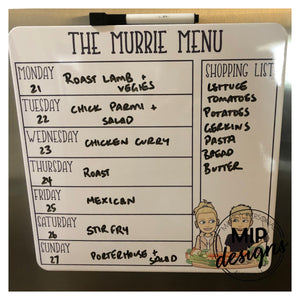 THE MURRIE MENU
MONDAY
21
ROAST LAMB +
VEGIES
TUESDAY
22
CHICK PARMI +
SALAD
WEDNESDAY
23
CHICKEN CURRY
THURSDAY
24
ROAST
FRIDAY
25
MEXICAN
SATURDAY
26
STIR FRY
SUNDAY
27
PORTERHOUSE +
SALAD
SHOPPING LIST
LETTUCE
TOMATOES
POTATOES
GERKINS
PASTA
BREAD
BUTTER
MIP
designs